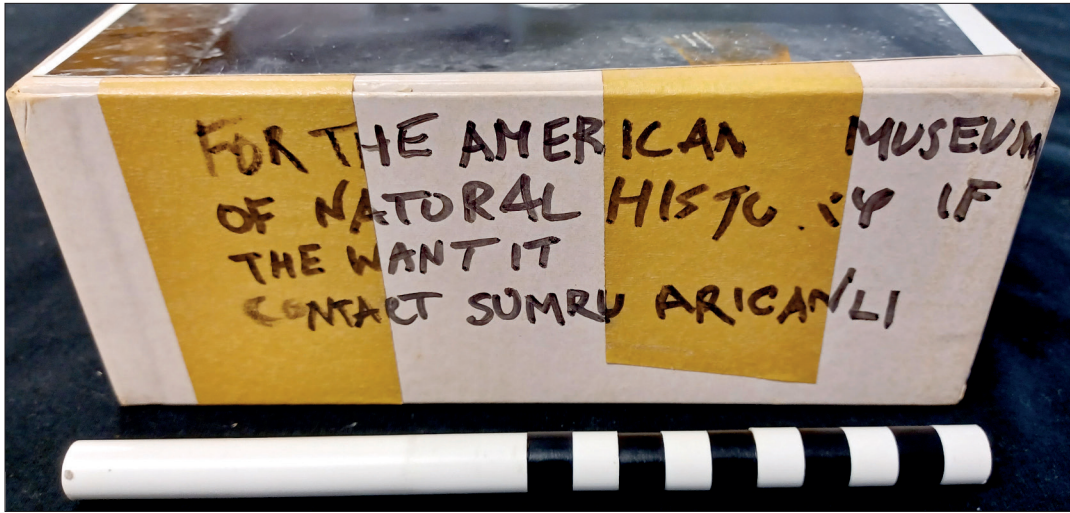 FOR THE AMERICAN MUSEUM
OF NATORAL HISTORY IF
THE WANT IT
CONTACT SUMRU ARICANLI